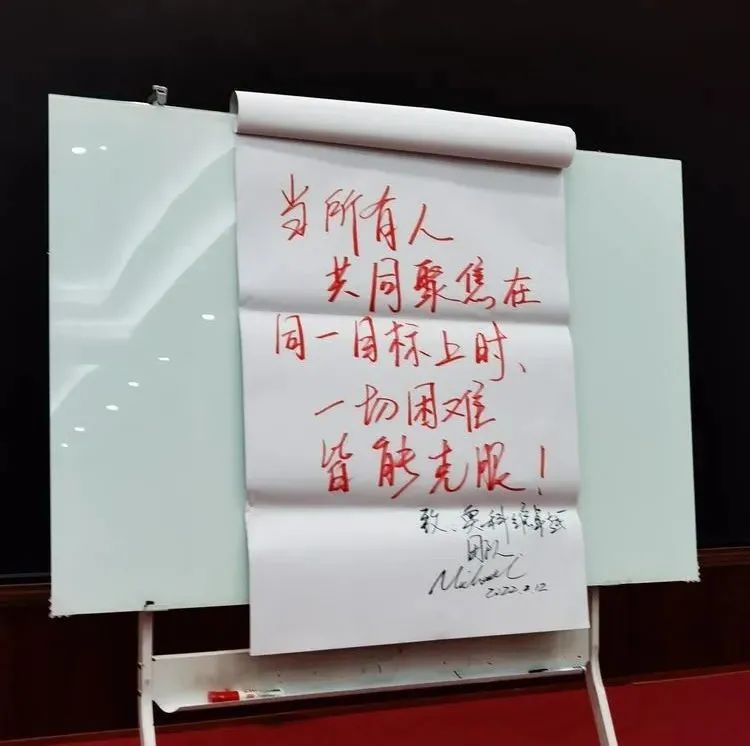 当所有人
共同聚焦在
同一目标上时、
一切困难
皆能克服！
致、奥科维
团队
Michael
2022.2.12